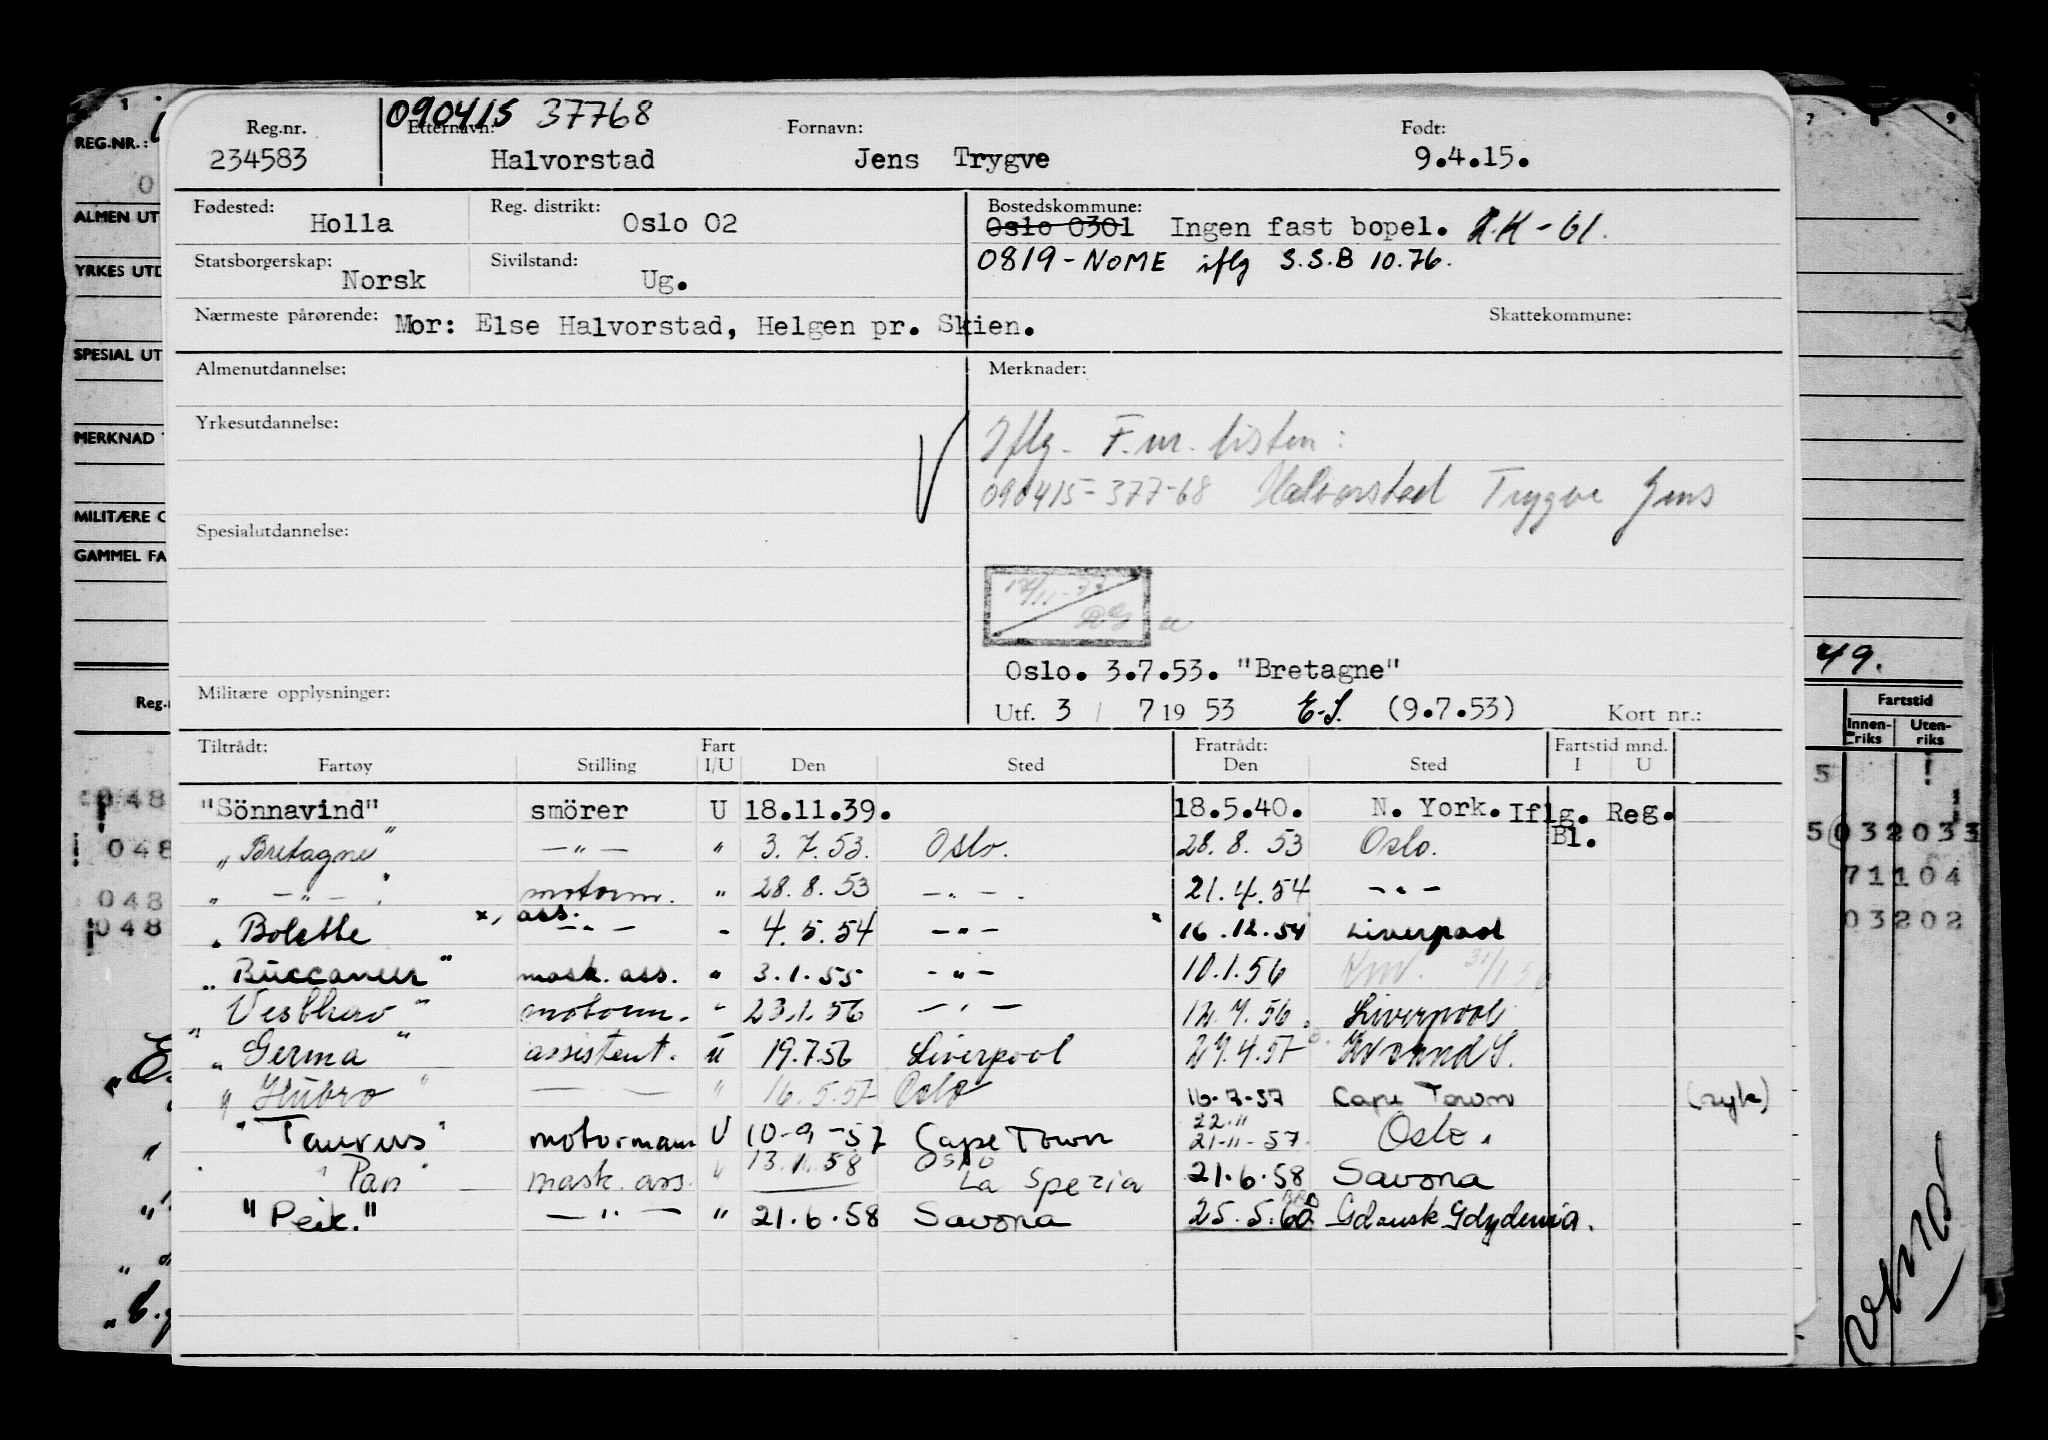 090415 37768
Reg.nr. Etternavn: Fornavn: Født:
234583 Halvorstad Jens Trygve 9.4.15.
Fødested: Holla Reg. distrikt: Oslo 02 Bostedskommune: Oslo 0301 Ingen fast bopel. R.K-61.
0819-NOME iflg S.S.B 10.76.
Statsborgerskap: Norsk Sivilstand: Ug.
Nærmeste pårørende: Mor: Else Halvorstad, Helgen pr. Skien. Skattekommune:
Almenutdannelse: Merknader:
Yrkesutdannelse: Iflg. F.nr. listen:
090415-377-68 Halvorstad Trygve Jens
Spesialutdannelse:
Oslo. 3.7.53. "Bretagne"
Militære opplysninger: Utf. 3 / 7 19 53 E.S. (9.7.53) Kort nr.:
Tiltrådt: Fart Fratrådt: Fartstid mnd.
Fartøy Stilling I/U Den Sted Den Sted I U
"Sönnavind" smörer U 18.11.39. 18.5.40. N. York. Iflg. Reg. Bl.
"Bretagne" —"— " 3.7.53. Oslo. 28.8.53 Oslo.
" —"— " motorm. " 28.8.53 —"— 21.4.54 —"—
"Bolette x, ass. —"— - 4.5.54 —"— x 16.12.54 Liverpool
"Buccaneer" mask. ass. " 3.1.55 —"— 10.1.56
"Vesthav" motorm. " 23.1.56 —"— 12.7.56. Liverpool
"Germa" assistent. u 19.7.56 Liverpool 29.4.57 Kr.sand S.
"Hubro" — — " 16.5.57 Oslo 16-7-57 Cape Town (syk)
"Taurus" motormann U 10-9-57 Cape Town 22.11 21-11-57. Oslo.
"Pan" mask. ass. " 13.1.58 Oslo La Spezia 21.6.58 Savona
"Peik." —"— " 21.6.58 Savona 25.5.60 Gdansk Gdydenia.
REG.NR.:
ALMEN UT
YRKES UTD
SPESIAL UT
MERKNAD
MILITÆRE O
GAMMEL FA
Reg.
048
048
048
048
49.
Fartstid
Innenriks Utenriks
5
5 032 033
71104
03202